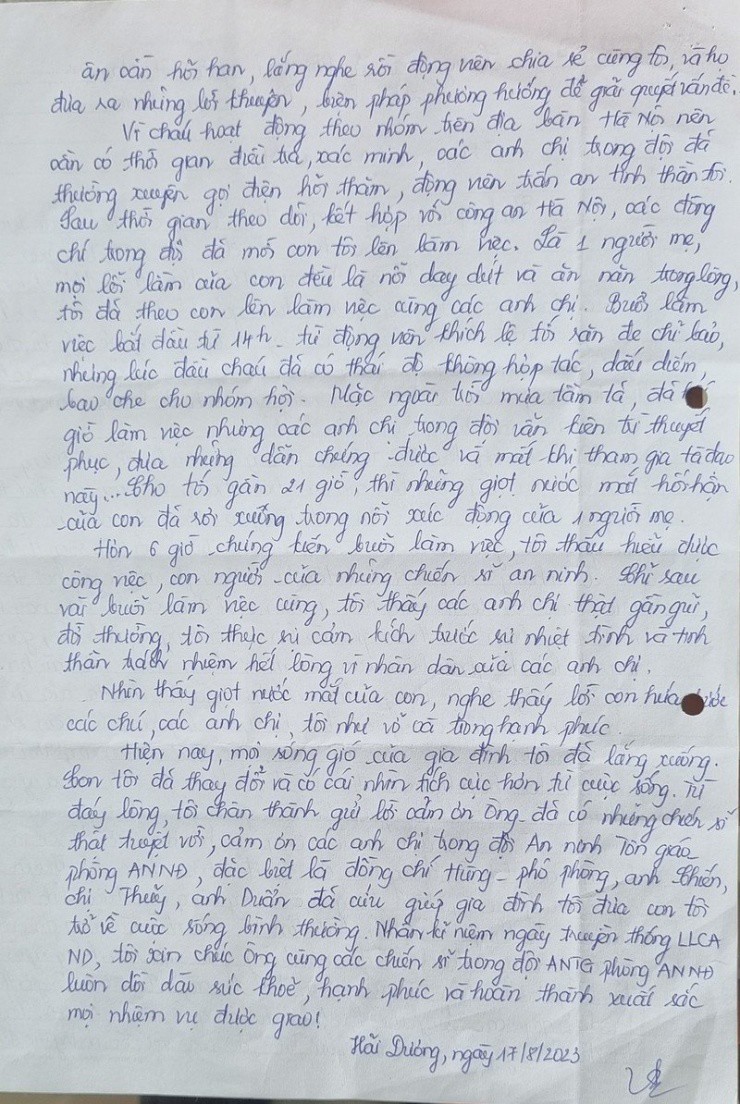 ân cần hỏi han, lắng nghe rồi động viên chia sẻ cùng tôi, và họ
đưa ra những lời khuyên, biện pháp phương hướng để giải quyết vấn đề.
Vì cháu hoạt động theo nhóm trên địa bàn Hà Nội nên
cần có thời gian điều tra, xác minh, các anh chị trong đội đã
thường xuyên gọi điện hỏi thăm, động viên trấn an tinh thần tôi.
Sau thời gian theo dõi, kết hợp với công an Hà Nội, các đồng
chí trong đội đã mời con tôi lên làm việc. Là 1 người mẹ,
mọi lỗi lầm của con đều là nỗi day dứt và ăn năn trong lòng,
tôi đã theo con lên làm việc cùng các anh chị. Buổi làm
việc bắt đầu từ 14h - từ động viên khích lệ tới răn đe chỉ bảo,
nhưng lúc đầu cháu đã có thái độ không hợp tác, dấu diếm,
bao che cho nhóm hội. Mặc ngoài trời mưa tầm tã, đã
giờ làm việc nhưng các anh chị trong đội vẫn kiên trì thuyết
phục, đưa những dẫn chứng được và mất khi tham gia tà đạo
này... Cho tới gần 21 giờ, thì những giọt nước mắt hối hận
của con đã rơi xuống trong nỗi xúc động của 1 người mẹ.
Hơn 6 giờ chứng kiến buổi làm việc, tôi thấu hiểu được
công việc, con người của những chiến sĩ an ninh. Chỉ sau
vài buổi làm việc cùng, tôi thấy các anh chị thật gần gũi,
đời thường, tôi thực sự cảm kích trước sự nhiệt tình và tinh
thần trách nhiệm hết lòng vì nhân dân của các anh chị.
Nhìn thấy giọt nước mắt của con, nghe thấy lời con hứa trước
các chú, các anh chị, tôi như vỡ oà trong hạnh phúc.
Hiện nay, mọi sóng gió của gia đình tôi đã lắng xuống.
Con tôi đã thay đổi và có cái nhìn tích cực hơn từ cuộc sống. Từ
đáy lòng, tôi chân thành gửi lời cảm ơn Ông - đã có những chiến sĩ
thật tuyệt vời, cảm ơn các anh chị trong đội An ninh Tôn giáo
phòng ANNĐ, đặc biệt là đồng chí Hùng - phó phòng, anh Chiến,
chị Thuỷ, anh Duẩn đã cứu giúp gia đình tôi đưa con tôi
trở về cuộc sống bình thường. Nhân kỉ niệm ngày truyền thống LLCA
ND, tôi xin chúc Ông cùng các chiến sĩ trong đội ANTG phòng ANNĐ
luôn dồi dào sức khoẻ, hạnh phúc và hoàn thành xuất sắc
mọi nhiệm vụ được giao!
Hải Dương, ngày 17/8/2023